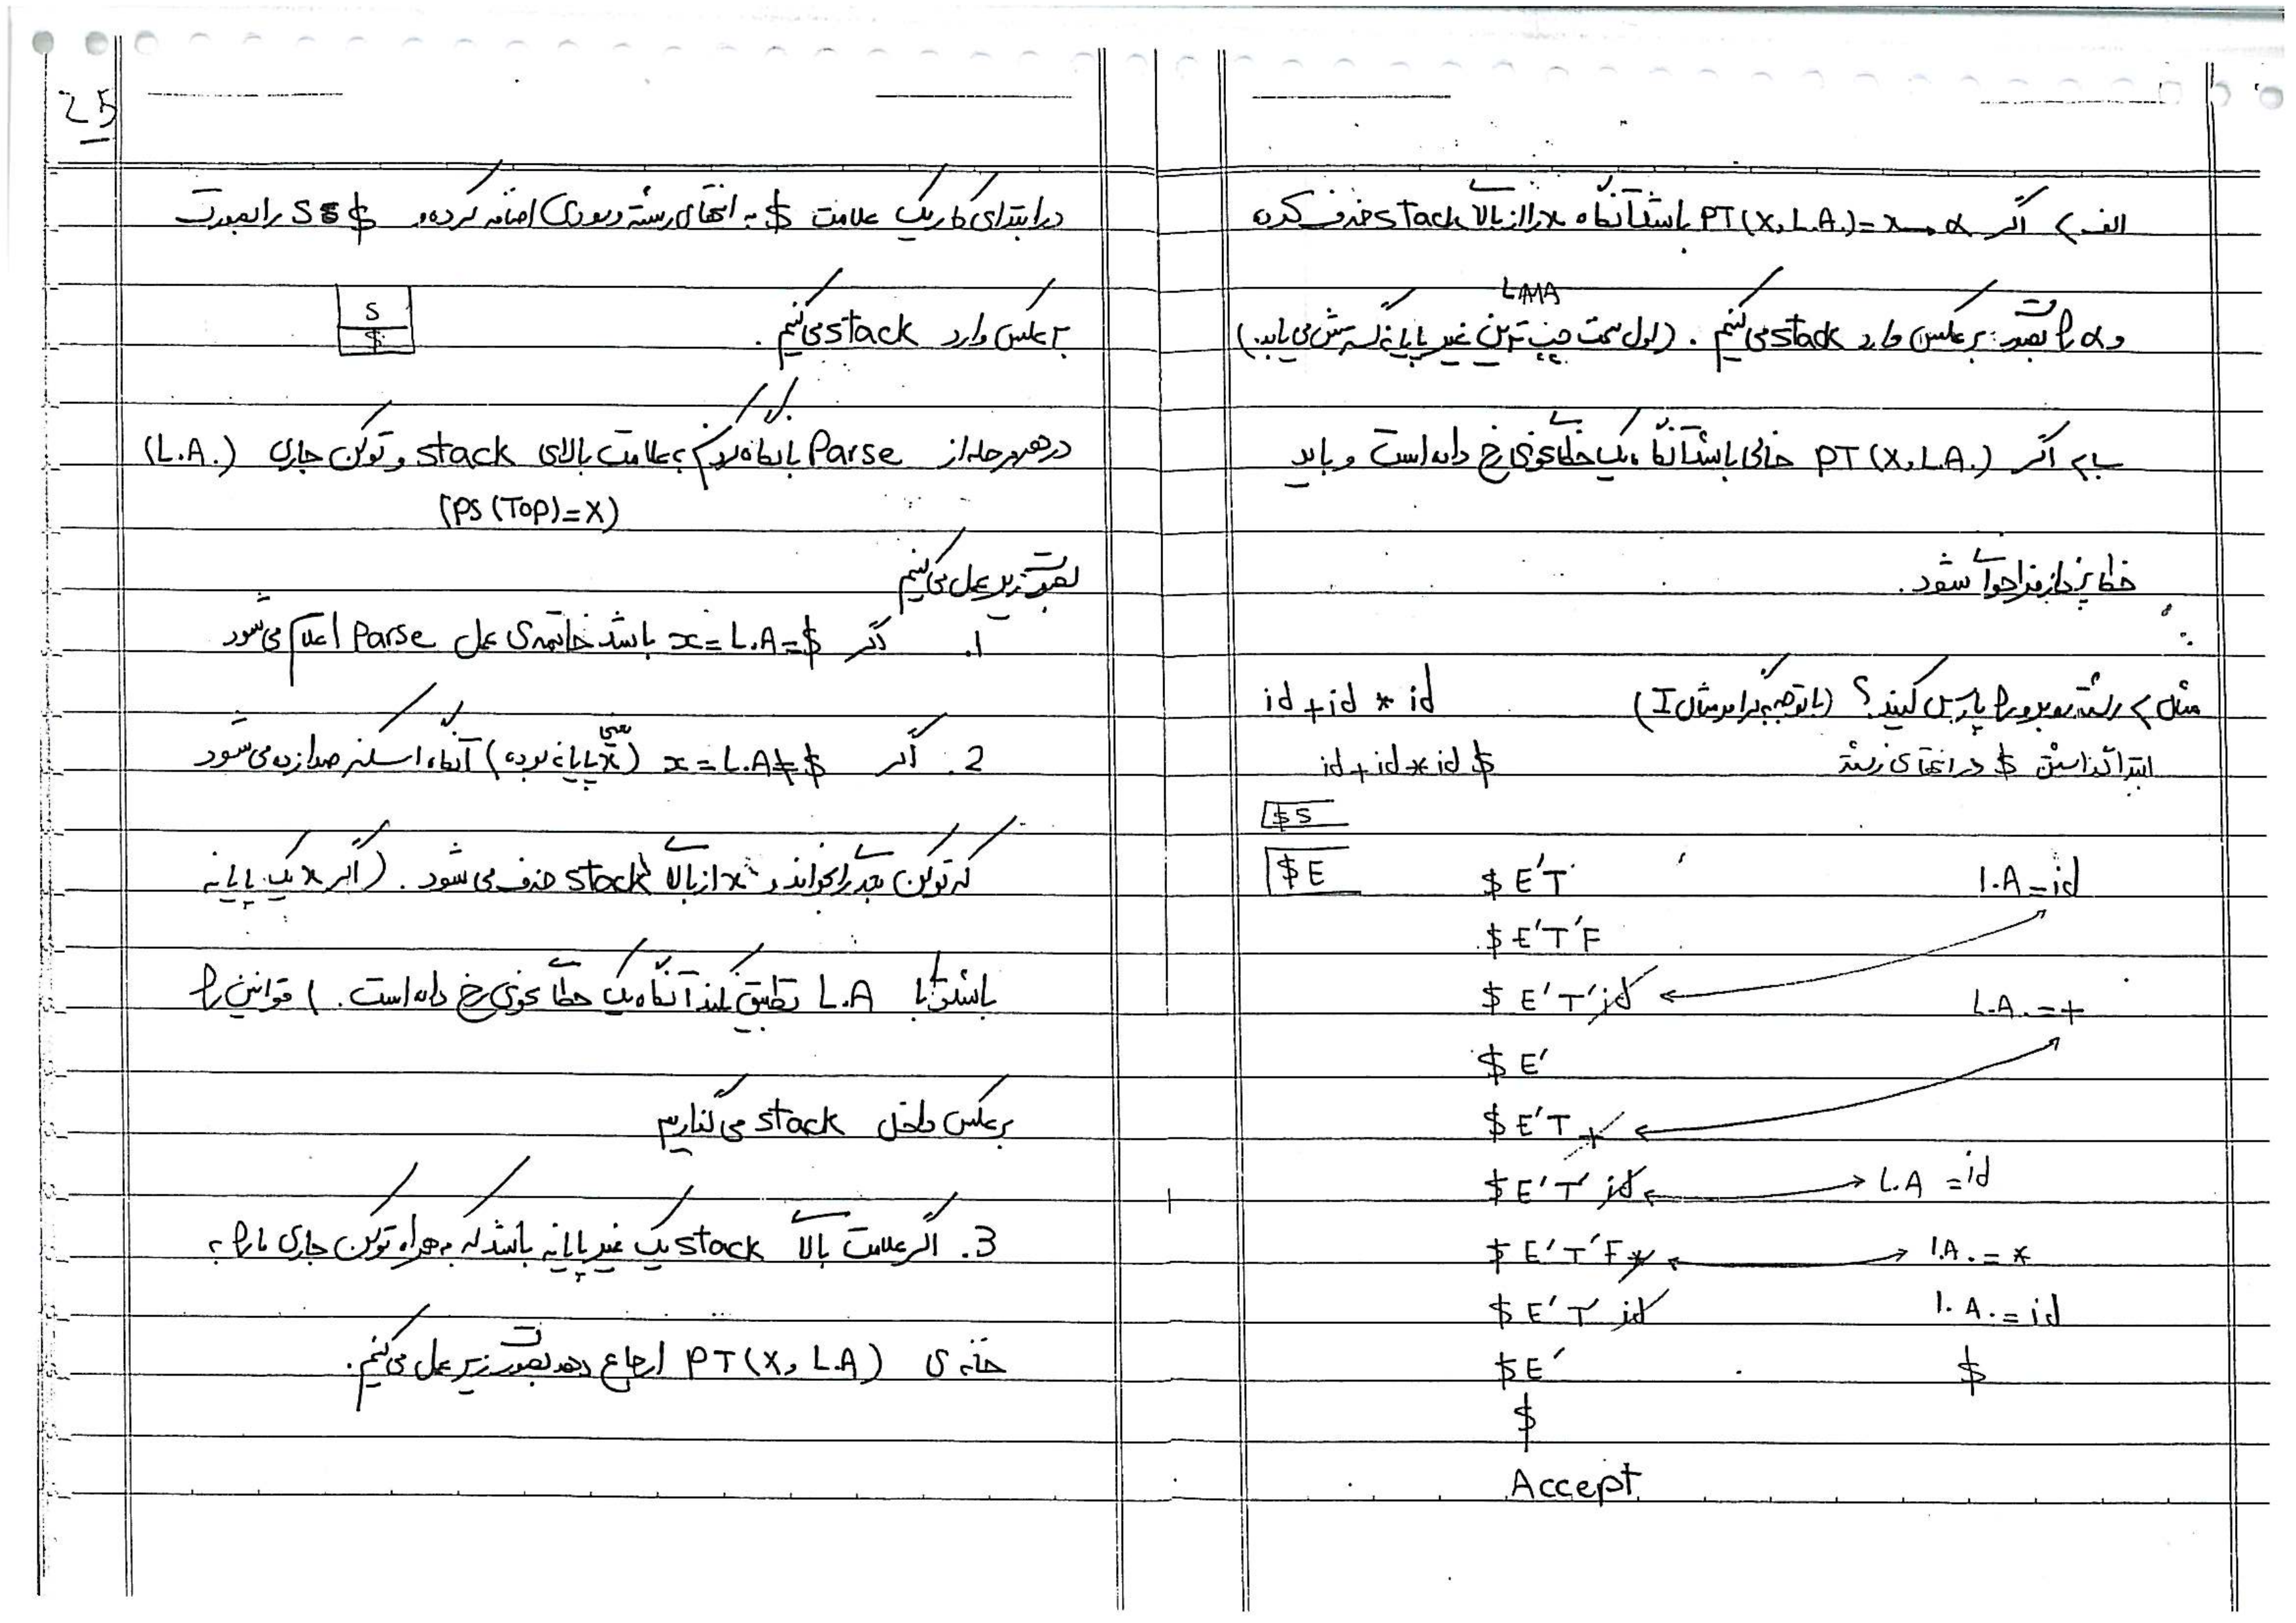 25
در ابتدای کار یک علامت $ به انتهای رشته ورودی اضافه کرده و S $ را بصورت
برعکس وارد stack می‌کنیم.
S
$
در هر مرحله از Parse با نگاه کردن به علامت بالای stack و توکن جاری (L.A.)
(PS (Top)=X)
بصورت زیر عمل می‌کنیم
1. اگر x=L.A=$ باشد خاتمه‌ی عمل Parse اعلام می‌شود
2. اگر x=L.A≠$ (یعنی x پایانه بوده) آنگاه اسکنر صدا زده می‌شود
که توکن بعدی را بخواند و x از بالای stack حذف می‌شود. (اگر x یک پایانه
باشد و با L.A تطبیق نکند آنگاه یک خطای نحوی رخ داده است.) قوانین را
برعکس داخل stack می‌گذاریم
3. اگر علامت بالای stack یک غیر پایانه باشد که به همراه توکن جاری ما را به
خانه‌ی PT(X, L.A) ارجاع دهد بصورت زیر عمل می‌کنیم.
الف > اگر PT(X, L.A.)=x→α باشد آنگاه x را از بالای stack حذف کرده
و α را بصورت برعکس وارد stack می‌کنیم. (اول سمت چپ ترین غیر پایانه گسترش می‌یابد.)
ب > اگر PT(X, L.A.) خالی باشد آنگاه یک خطای نحوی رخ داده است و باید
خطا پرداز فراخوانی شود.
مثال > رشته روبرو را پارس کنید؟ (با توجه به گرامر مثال I) id+id * id
ابتدا گذاشتن $ در انتهای رشته id+id*id $
$S
$E $E'T L.A=id
$E'T'F
$E'T'id L.A.=+
$E'
$E'T+
$E'T'id L.A=id
$E'T'F* L.A.=*
$E'T'id L.A.=id
$E' $
$
Accept